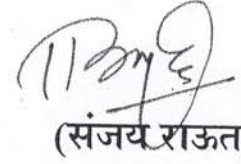 (संजय राऊत